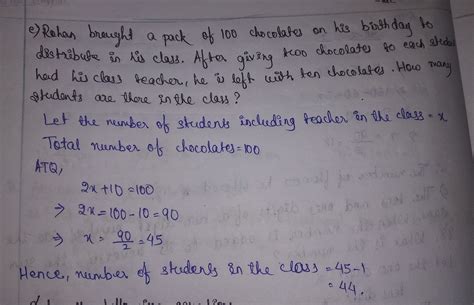 e) Rohan brought a pack of 100 chocolates on his birthday to
distribute in his class. After giving two chocolates to each
had his class teacher, he is left with ten chocolates. How many
students are there in the class?
Let the number of students including teacher in the class = x
Total number of chocolates=100
ATQ,
2x+10=100
⇒ 2x=100-10=90
⇒ x = 90/2 = 45
Hence, number of students in the class = 45-1
= 44.